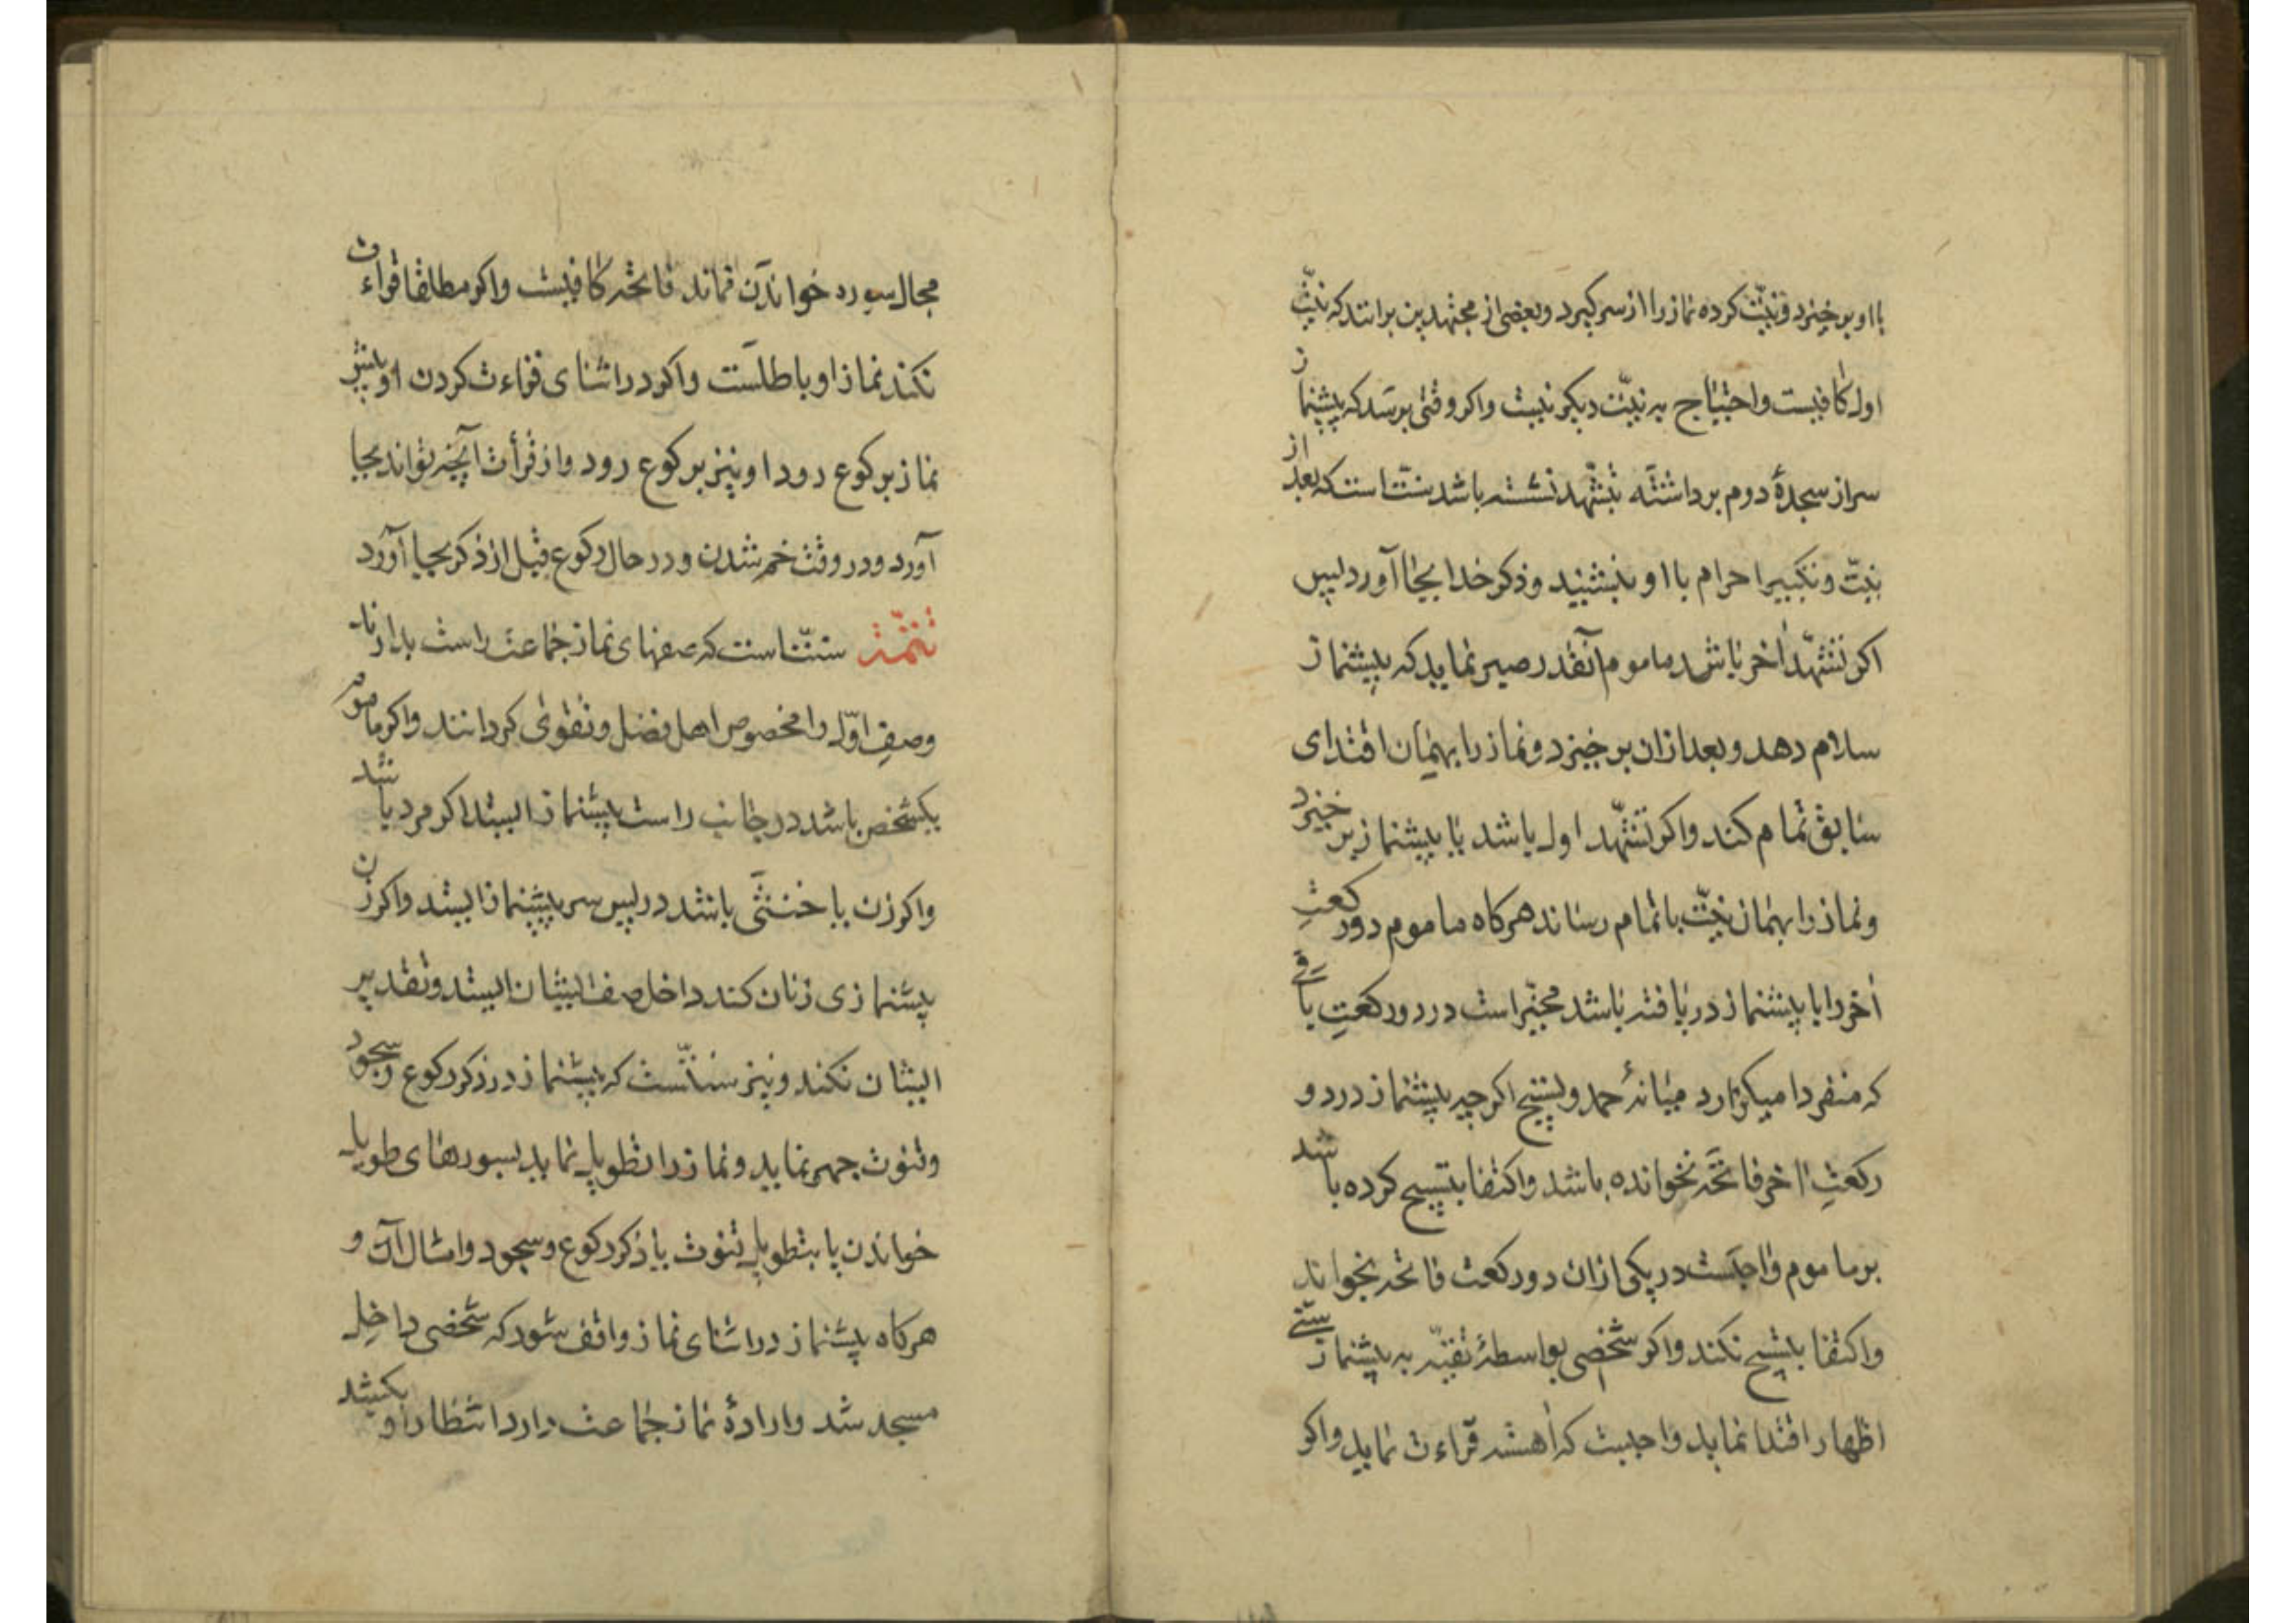 بااو برخیزد ونیّت کرده نماز را از سر کیرد وبعضی از مجتهدین برانند که نیّت
اول کافیست واحتیاج به نیّت دیکر نیست واکر وقتی برسد که پیشنماز
سر از سجدهٔ دوم برداشته بتشهّد نشسته باشد سنّت است که بعد از
نیّت وتکبیر احرام بااو بنشیند وذکر خدا بجا آورد پس
اکر تشهّد اخر باشد ماموم آنقدر صبر نماید که پیشنماز
سلام دهد وبعد ازان برخیزد ونماز را بهمان اقتدای
سابق تمام کند واکر تشهّد اول باشد با پیشنماز برخیزد
ونماز را بهمان نیّت باتمام رساند هرکاه ماموم دورکعتِ
اخر را با پیشنماز دریافته باشد مخیّر است در دورکعتِ باقی
که منفردا میکزارد میانهٔ حمد وتسبیح اکرچه پیشنماز در دو
رکعتِ اخر فاتحه نخوانده باشد واکتفا بتسبیح کرده باشد
بر ماموم واجبست در یکی ازان دورکعت فاتحه بخواند
واکتفا بتسبیح نکند واکر شخصی بواسطهٔ تقیّه به پیشنماز سنّی
اظهار اقتدا نماید واجبست که اهسته قراءت نماید واکر
مجال سوره خواندن نماند فاتحه کافیست واکر مطلقا قراءت
نکند نماز او باطلست واکر در اثنای قراءت کردن او پیش
نماز برکوع رود او نیز برکوع رود واز قرأت آنچه تواند بجا
آورد ودر وقت خم شدن ودر حال رکوع قبل از ذکر بجا آورد
تتمّه سنّت است که صفهای نماز جماعت راست بدارند
وصفِ اوّل را مخصوص اهل فضل وتقوی کردانند واکر ماموم
یکشخص باشد در جانب راست پیشنماز ایستد اکر مرد باشد
واکر زن یا خنثی باشد در پس سر پیشنماز ایستد واکر زن
پیشنمازی زنان کند داخل صف ایشان ایستد وتقدیر
ایشان نکند ونیز سنّتست که پیشنماز در ذکر رکوع وسجود
وقنوت جهر نماید ونماز را تطویل نماید بسورهای طویل
خواندن یا بتطویل قنوت یا ذکر رکوع وسجود وامثال آن و
هرکاه پیشنماز در اثنای نماز واقف شود که شخصی داخل
مسجد شد وارادهٔ نماز جماعت دارد انتظار او بکشد